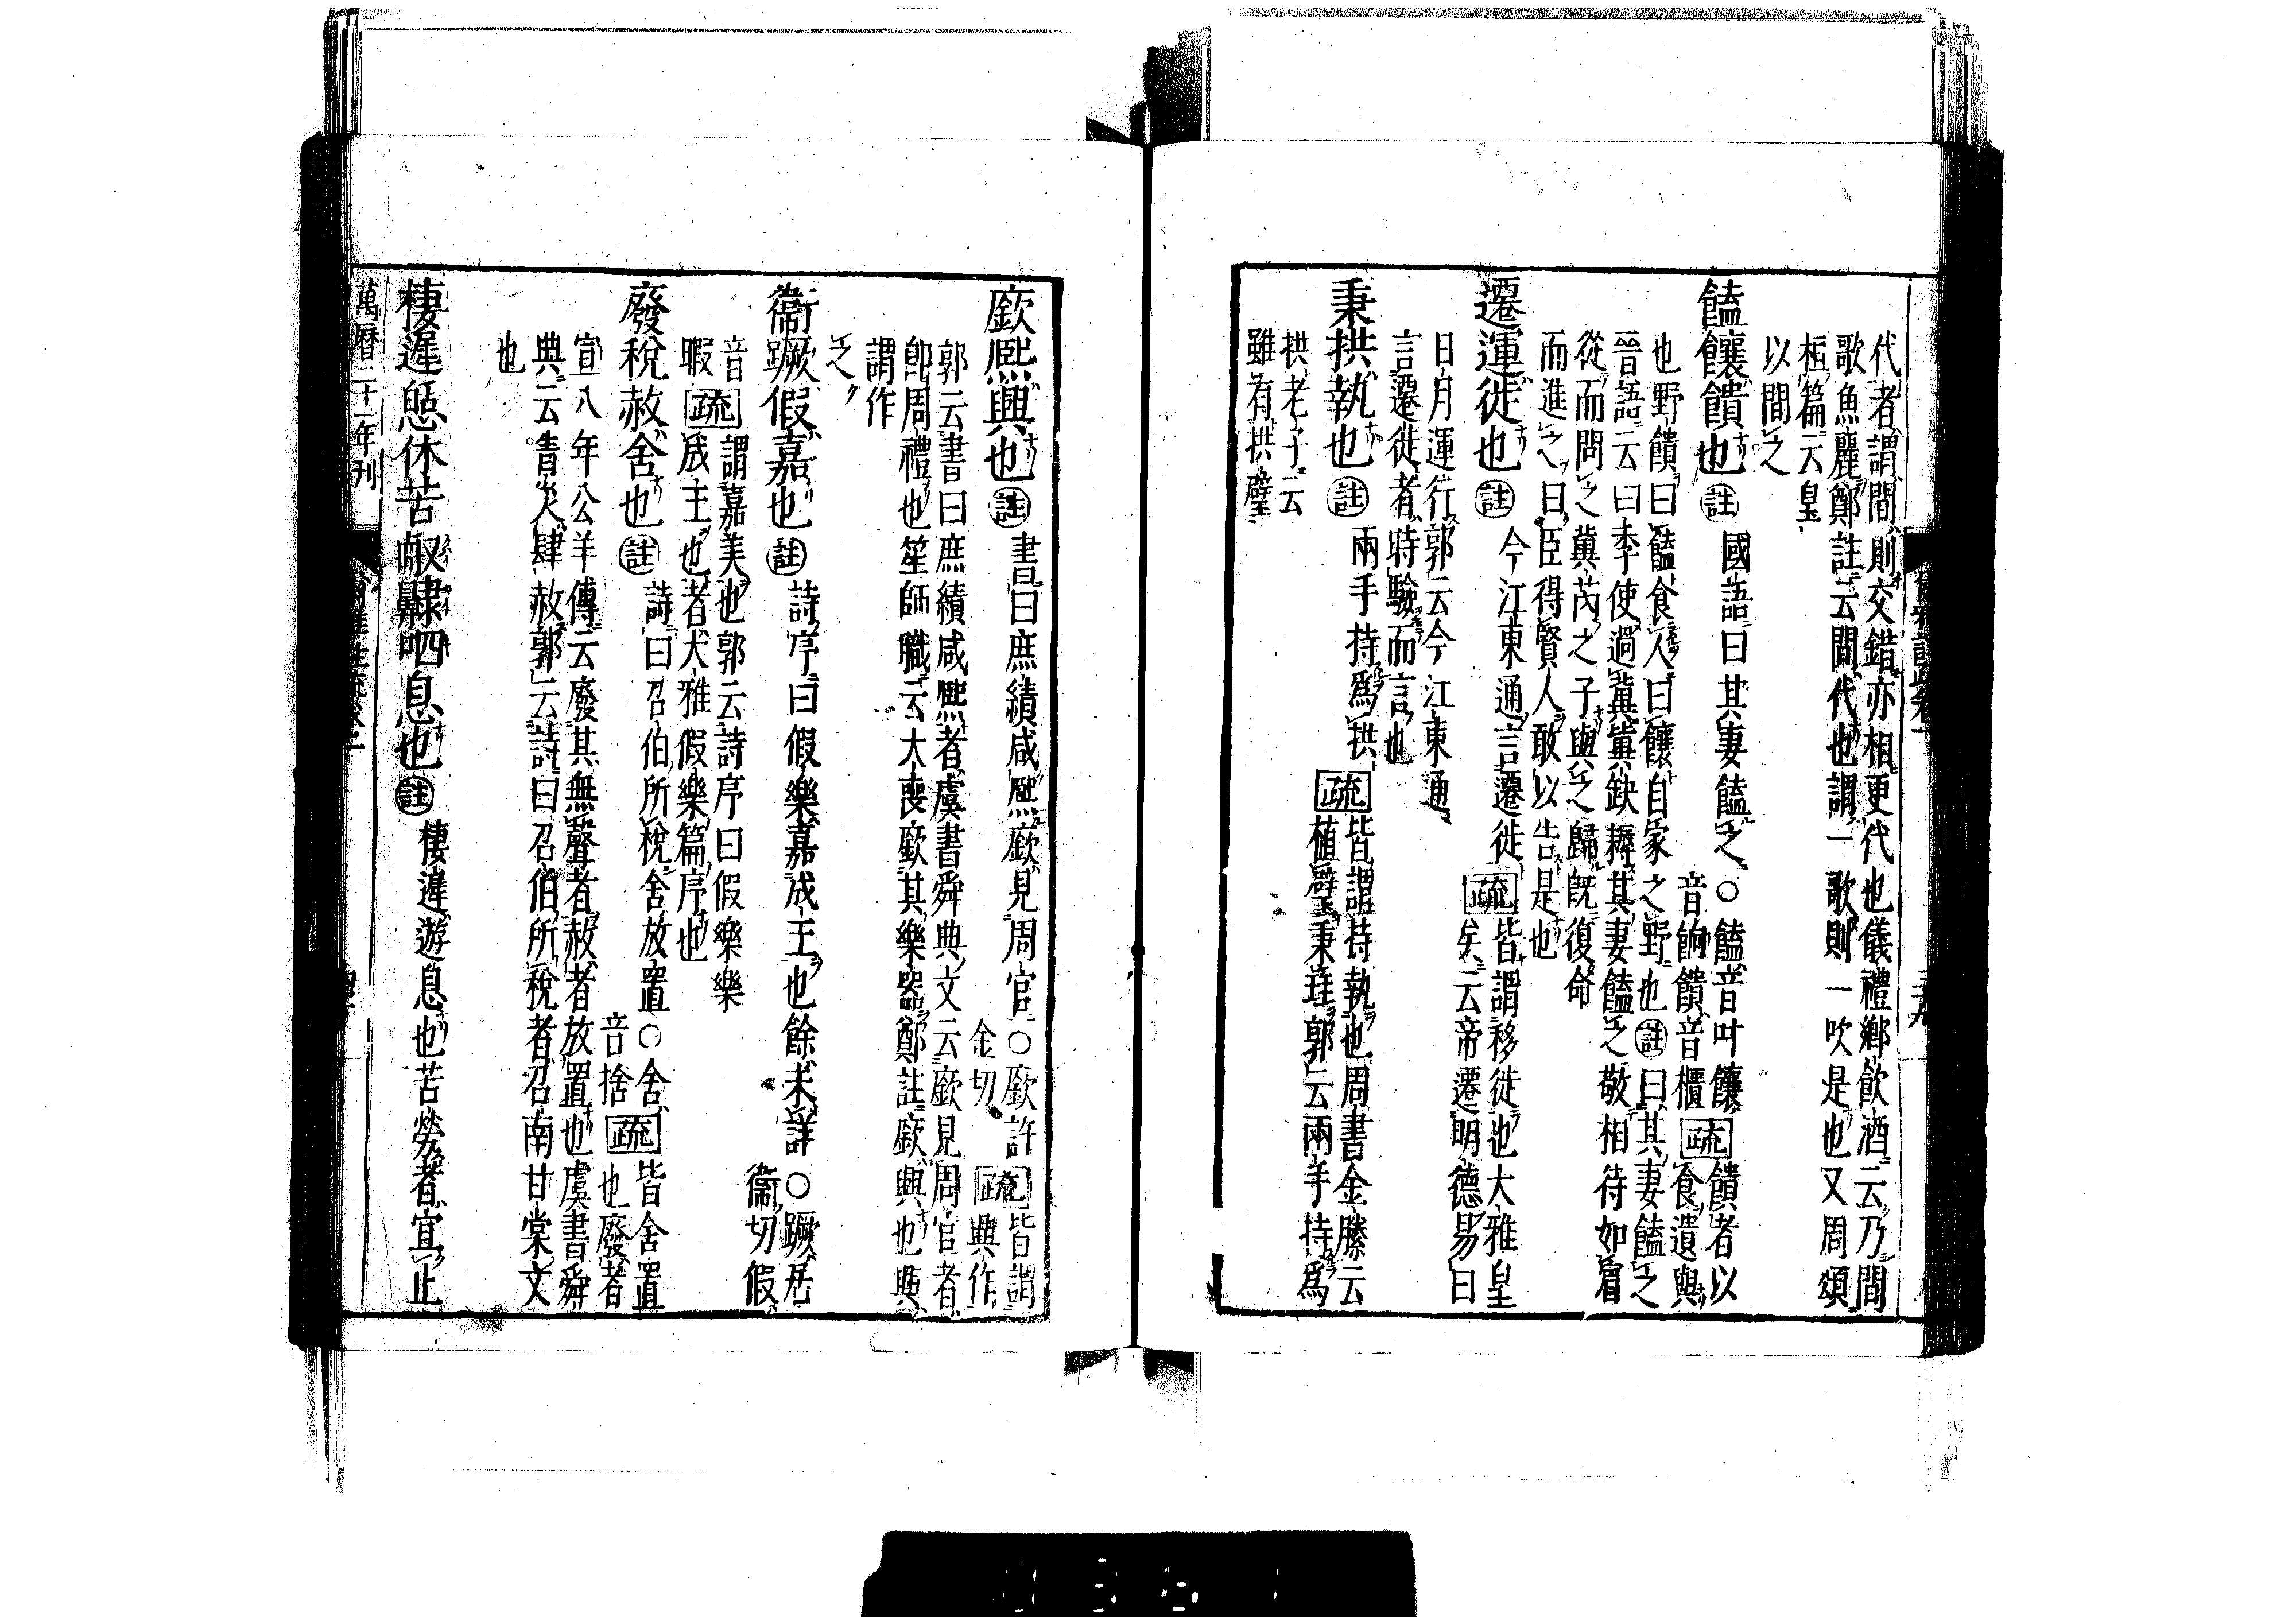 代者謂間則交錯亦相更代也儀禮鄉飲酒云乃間
歌魚麗鄭註云間代也謂一歌則一吹是也又周頌
桓篇云皇
以間之
饁饟饋也註國語曰其妻饁之○饁音叶饟
音餉饋音櫃疏饋者以
食遺與
也野饋曰饁食人曰饟自家之野也註曰其妻饁之
晉語云曰季使過冀冀缺耨其妻饁之敬相待如賓
從而問之冀芮之子與之歸既復命
而進之曰臣得賢人敢以告是也
遷運徙也註今江東通言遷徙疏皆謂移徙也大雅皇
矣云帝遷明德易曰
日月運行郭云今江東通
言遷徙者時驗而言也
秉拱執也註兩手持爲拱疏皆謂持執也周書金縢云
植璧秉珪郭云兩手持爲
拱老子云
雖有拱璧
廞熙興也註書曰庶績咸熙廞見周官○廞許
金切疏皆謂
興作
郭云書曰庶績咸熙者虞書舜典文云廞見周官者
卽周禮也笙師職云大喪廞其樂器鄭註廞興也興
謂作
之
衞蹶假嘉也註詩序曰假樂嘉成王也餘未詳○蹶居
衞切假
音
暇疏謂嘉美也郭云詩序曰假樂樂
成王也者大雅假樂篇序也
廢稅赦舍也註詩曰召伯所稅舍放置○舍
音捨疏皆舍置
也廢者
宣八年公羊傳云廢其無聲者赦者放置也虞書舜
典云眚災肆赦郭云詩曰召伯所稅者召南甘棠文
也
棲遲憩休苦 齂呬息也註棲遲遊息也苦勞者宜止
萬曆二十一年刊